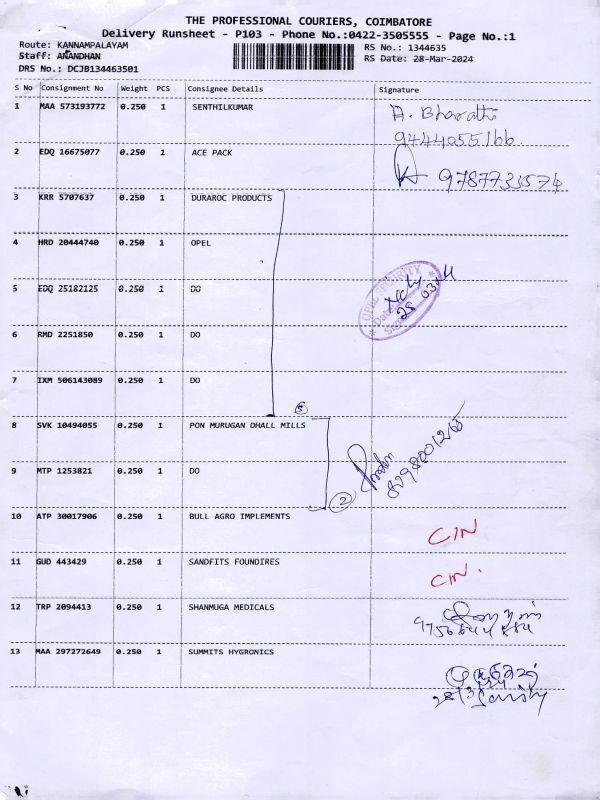 THE PROFESSIONAL COURIERS, COIMBATORE
Delivery Runsheet - P103 - Phone No.:0422-3505555 - Page No.:1
Route: KANNAMPALAYAM RS No.: 1344635
Staff: ANANDHAN RS Date: 28-Mar-2024
DRS No.: DCJB134463501
S No Consignment No Weight PCS Consignee Details Signature
1 MAA 573193772 0.250 1 SENTHILKUMAR A. Bharathi
9444055166
2 EDQ 16675077 0.250 1 ACE PACK
3 KRR 5707637 0.250 1 DURAROC PRODUCTS
4 HRD 20444740 0.250 1 OPEL
5 EDQ 25182125 0.250 1 DO
OPEL SECURITY
6 RMD 2251850 0.250 1 DO
7 IXM 506143089 0.250 1 DO
5
8 SVK 10494055 0.250 1 PON MURUGAN DHALL MILLS
9 MTP 1253821 0.250 1 DO
2
10 ATP 30017906 0.250 1 BULL AGRO IMPLEMENTS CIN
11 GUD 443429 0.250 1 SANDFITS FOUNDIRES CIN.
12 TRP 2094413 0.250 1 SHANMUGA MEDICALS
13 MAA 297272649 0.250 1 SUMMITS HYGRONICS